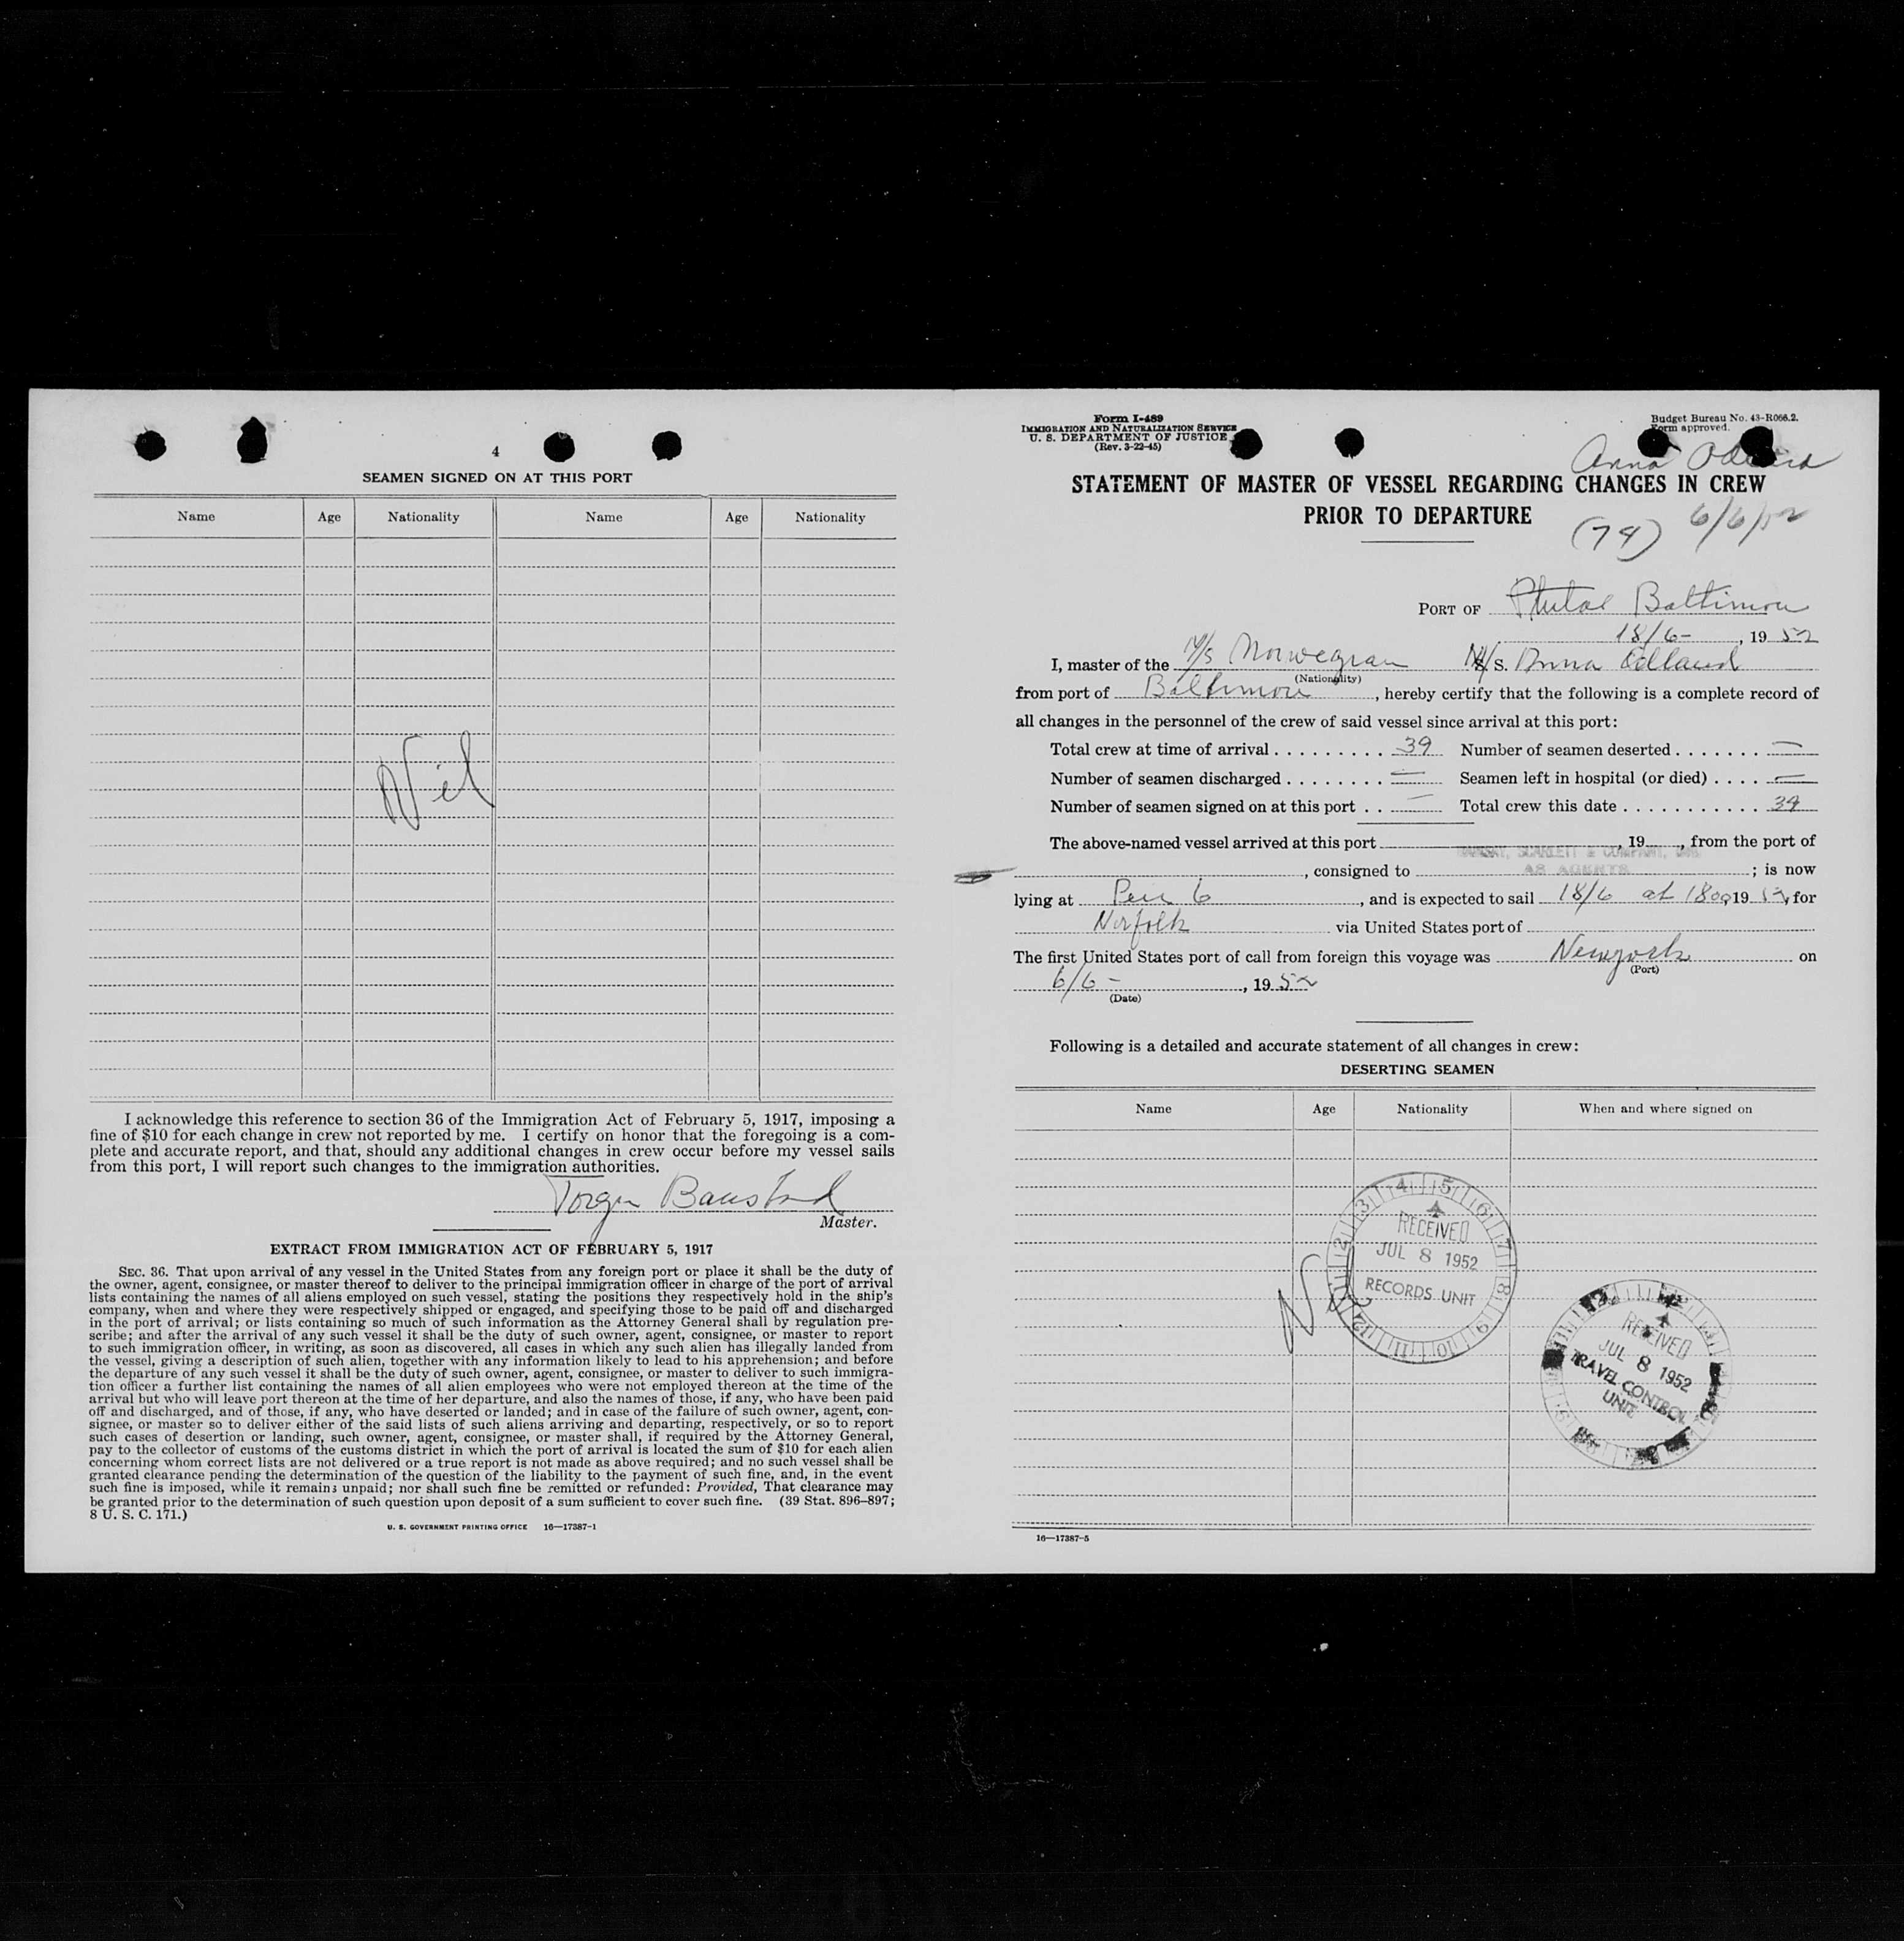 4
SEAMEN SIGNED ON AT THIS PORT
Name Age Nationality Name Age Nationality
Nil
I acknowledge this reference to section 36 of the Immigration Act of February 5, 1917, imposing a
fine of $10 for each change in crew not reported by me. I certify on honor that the foregoing is a com-
plete and accurate report, and that, should any additional changes in crew occur before my vessel sails
from this port, I will report such changes to the immigration authorities.
Master.
EXTRACT FROM IMMIGRATION ACT OF FEBRUARY 5, 1917
SEC. 36. That upon arrival of any vessel in the United States from any foreign port or place it shall be the duty of
the owner, agent, consignee, or master thereof to deliver to the principal immigration officer in charge of the port of arrival
lists containing the names of all aliens employed on such vessel, stating the positions they respectively hold in the ship's
company, when and where they were respectively shipped or engaged, and specifying those to be paid off and discharged
in the port of arrival; or lists containing so much of such information as the Attorney General shall by regulation pre-
scribe; and after the arrival of any such vessel it shall be the duty of such owner, agent, consignee, or master to report
to such immigration officer, in writing, as soon as discovered, all cases in which any such alien has illegally landed from
the vessel, giving a description of such alien, together with any information likely to lead to his apprehension; and before
the departure of any such vessel it shall be the duty of such owner, agent, consignee, or master to deliver to such immigra-
tion officer a further list containing the names of all alien employees who were not employed thereon at the time of the
arrival but who will leave port thereon at the time of her departure, and also the names of those, if any, who have been paid
off and discharged, and of those, if any, who have deserted or landed; and in case of the failure of such owner, agent, con-
signee, or master so to deliver either of the said lists of such aliens arriving and departing, respectively, or so to report
such cases of desertion or landing, such owner, agent, consignee, or master shall, if required by the Attorney General,
pay to the collector of customs of the customs district in which the port of arrival is located the sum of $10 for each alien
concerning whom correct lists are not delivered or a true report is not made as above required; and no such vessel shall be
granted clearance pending the determination of the question of the liability to the payment of such fine, and, in the event
such fine is imposed, while it remains unpaid; nor shall such fine be remitted or refunded: Provided, That clearance may
be granted prior to the determination of such question upon deposit of a sum sufficient to cover such fine. (39 Stat. 896–897;
8 U. S. C. 171.)
U. S. GOVERNMENT PRINTING OFFICE 16—17387-1
Form I-489
IMMIGRATION AND NATURALIZATION SERVICE
U. S. DEPARTMENT OF JUSTICE
(Rev. 3-22-45)
Budget Bureau No. 43-R066.2.
Form approved.
Anna Odland
STATEMENT OF MASTER OF VESSEL REGARDING CHANGES IN CREW
PRIOR TO DEPARTURE
(74) 6/6/52
PORT OF Baltimore
18/6- , 19 52
I, master of the M/S Norwegian M/S. Anna Odland
(Nationality)
from port of Baltimore , hereby certify that the following is a complete record of
all changes in the personnel of the crew of said vessel since arrival at this port:
Total crew at time of arrival . . . . . . . . . 39 Number of seamen deserted . . . . . . . —
Number of seamen discharged . . . . . . . . — Seamen left in hospital (or died) . . . . —
Number of seamen signed on at this port . . — Total crew this date . . . . . . . . . . . . 39
The above-named vessel arrived at this port , 19 , from the port of
RAMSAY, SCARLETT & COMPANY, INC.
, consigned to AS AGENTS ; is now
lying at Pier 6 , and is expected to sail 18/6 at 1800, 19 52, for
Norfolk via United States port of
The first United States port of call from foreign this voyage was Newyork on
(Port)
6/6 - , 19 52
(Date)
Following is a detailed and accurate statement of all changes in crew:
DESERTING SEAMEN
Name Age Nationality When and where signed on
RECEIVED
JUL 8 1952
RECORDS UNIT
RECEIVED
JUL 8 1952
TRAVEL CONTROL
UNIT
16—17387-5